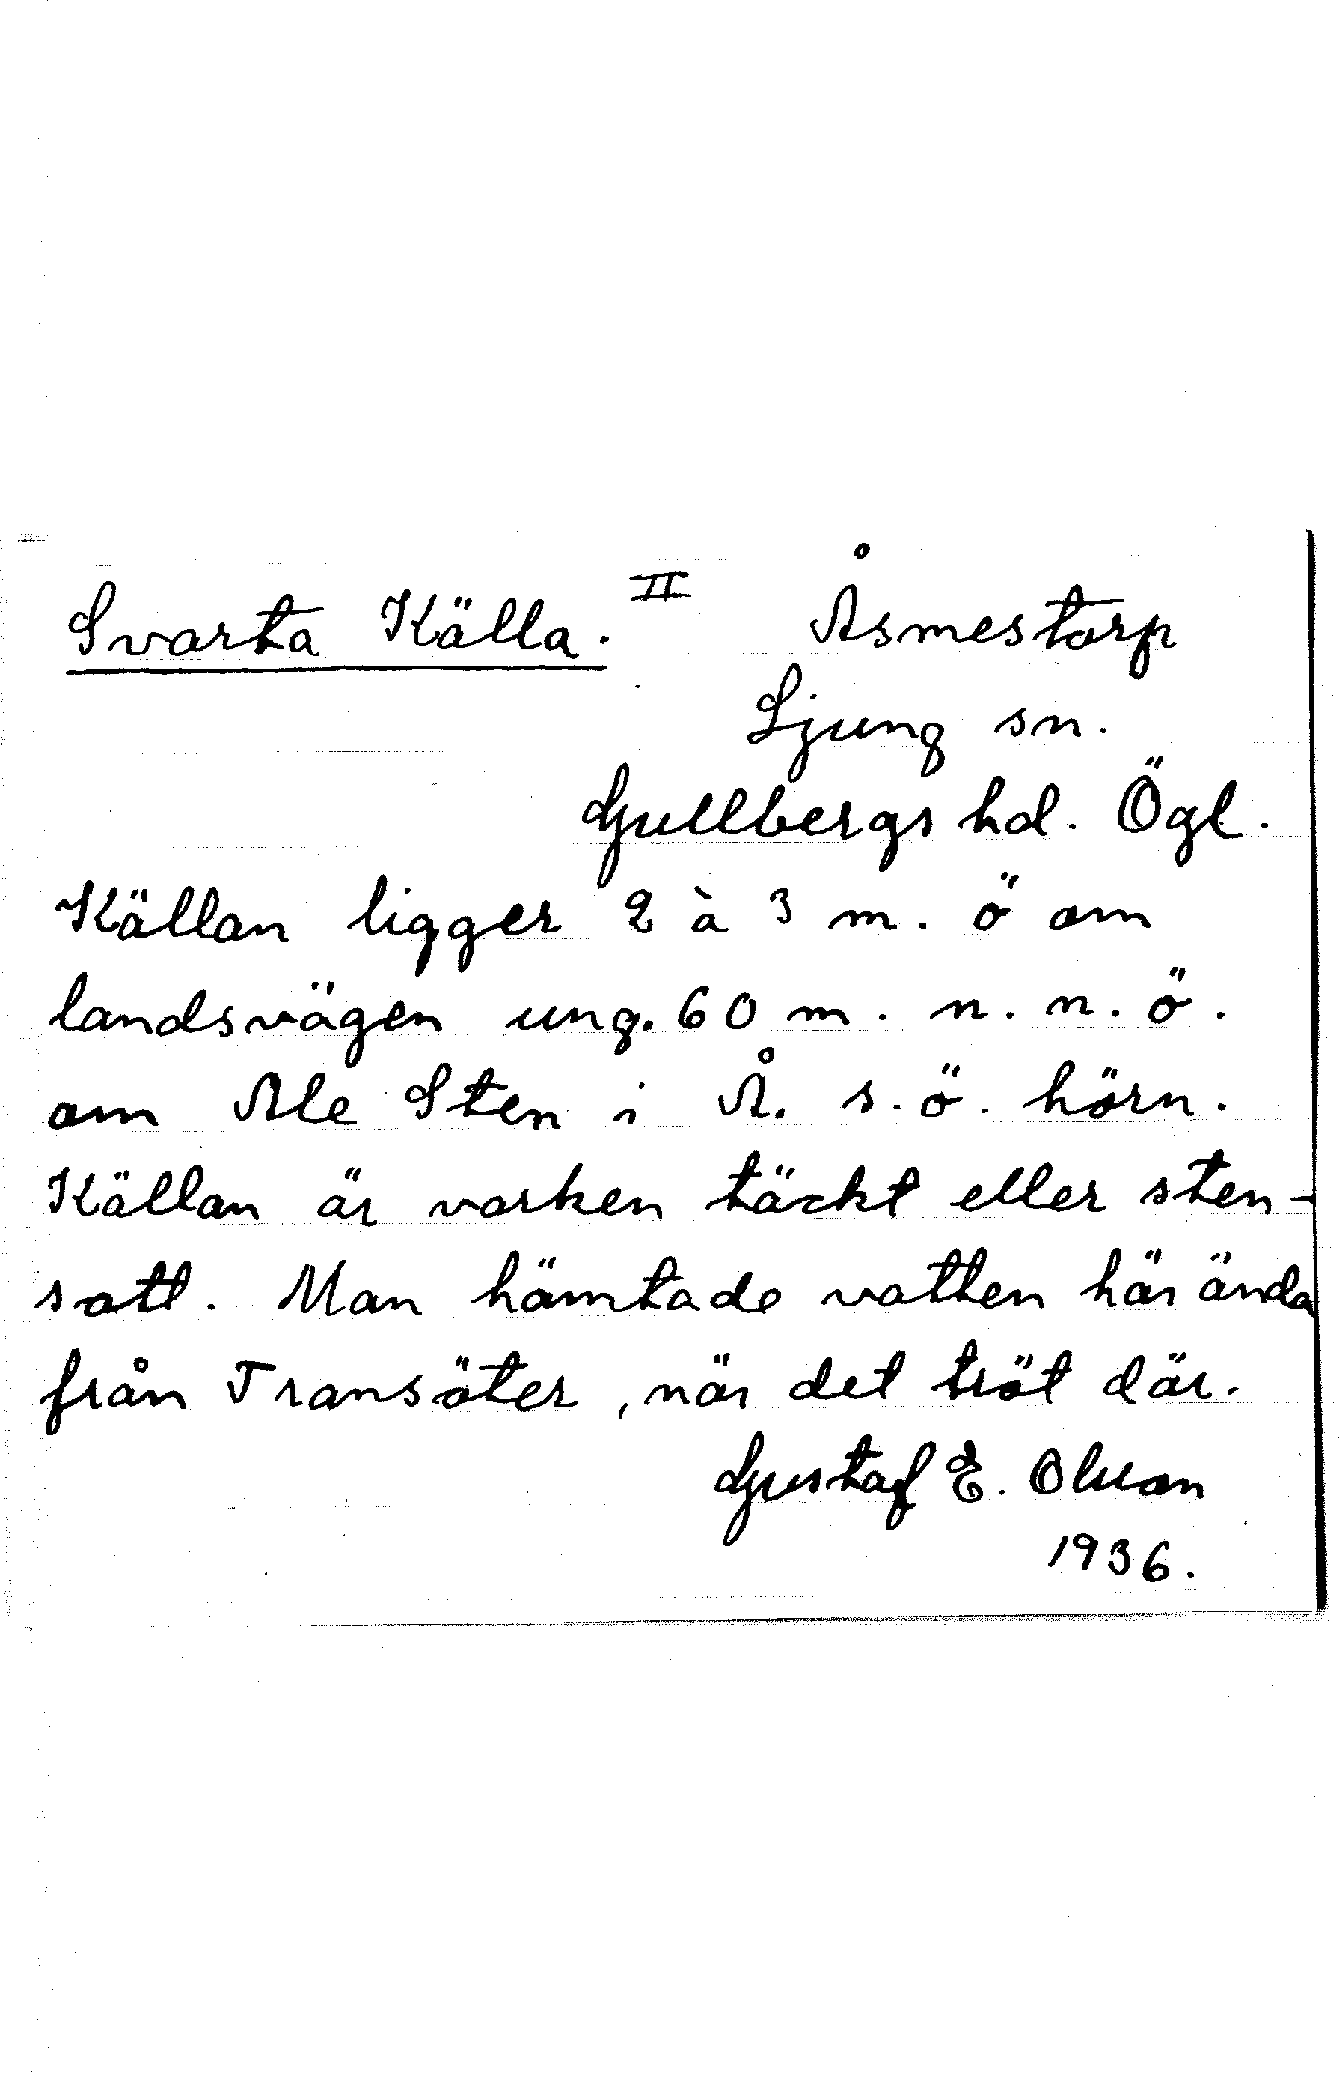 Svarta Källa. II Åsmestorp
Ljung sn.
Gullbergs hd. Ögl.
Källan ligger 2 à 3 m. ö om
landsvägen ung. 60 m. n. n. ö.
om Ale Sten i Å. s. ö. hörn.
Källan är varken täckt eller sten-
satt. Man hämtade vatten här ända
från Transäter, när det tröt där.
Gustaf E. Olsson
1936.